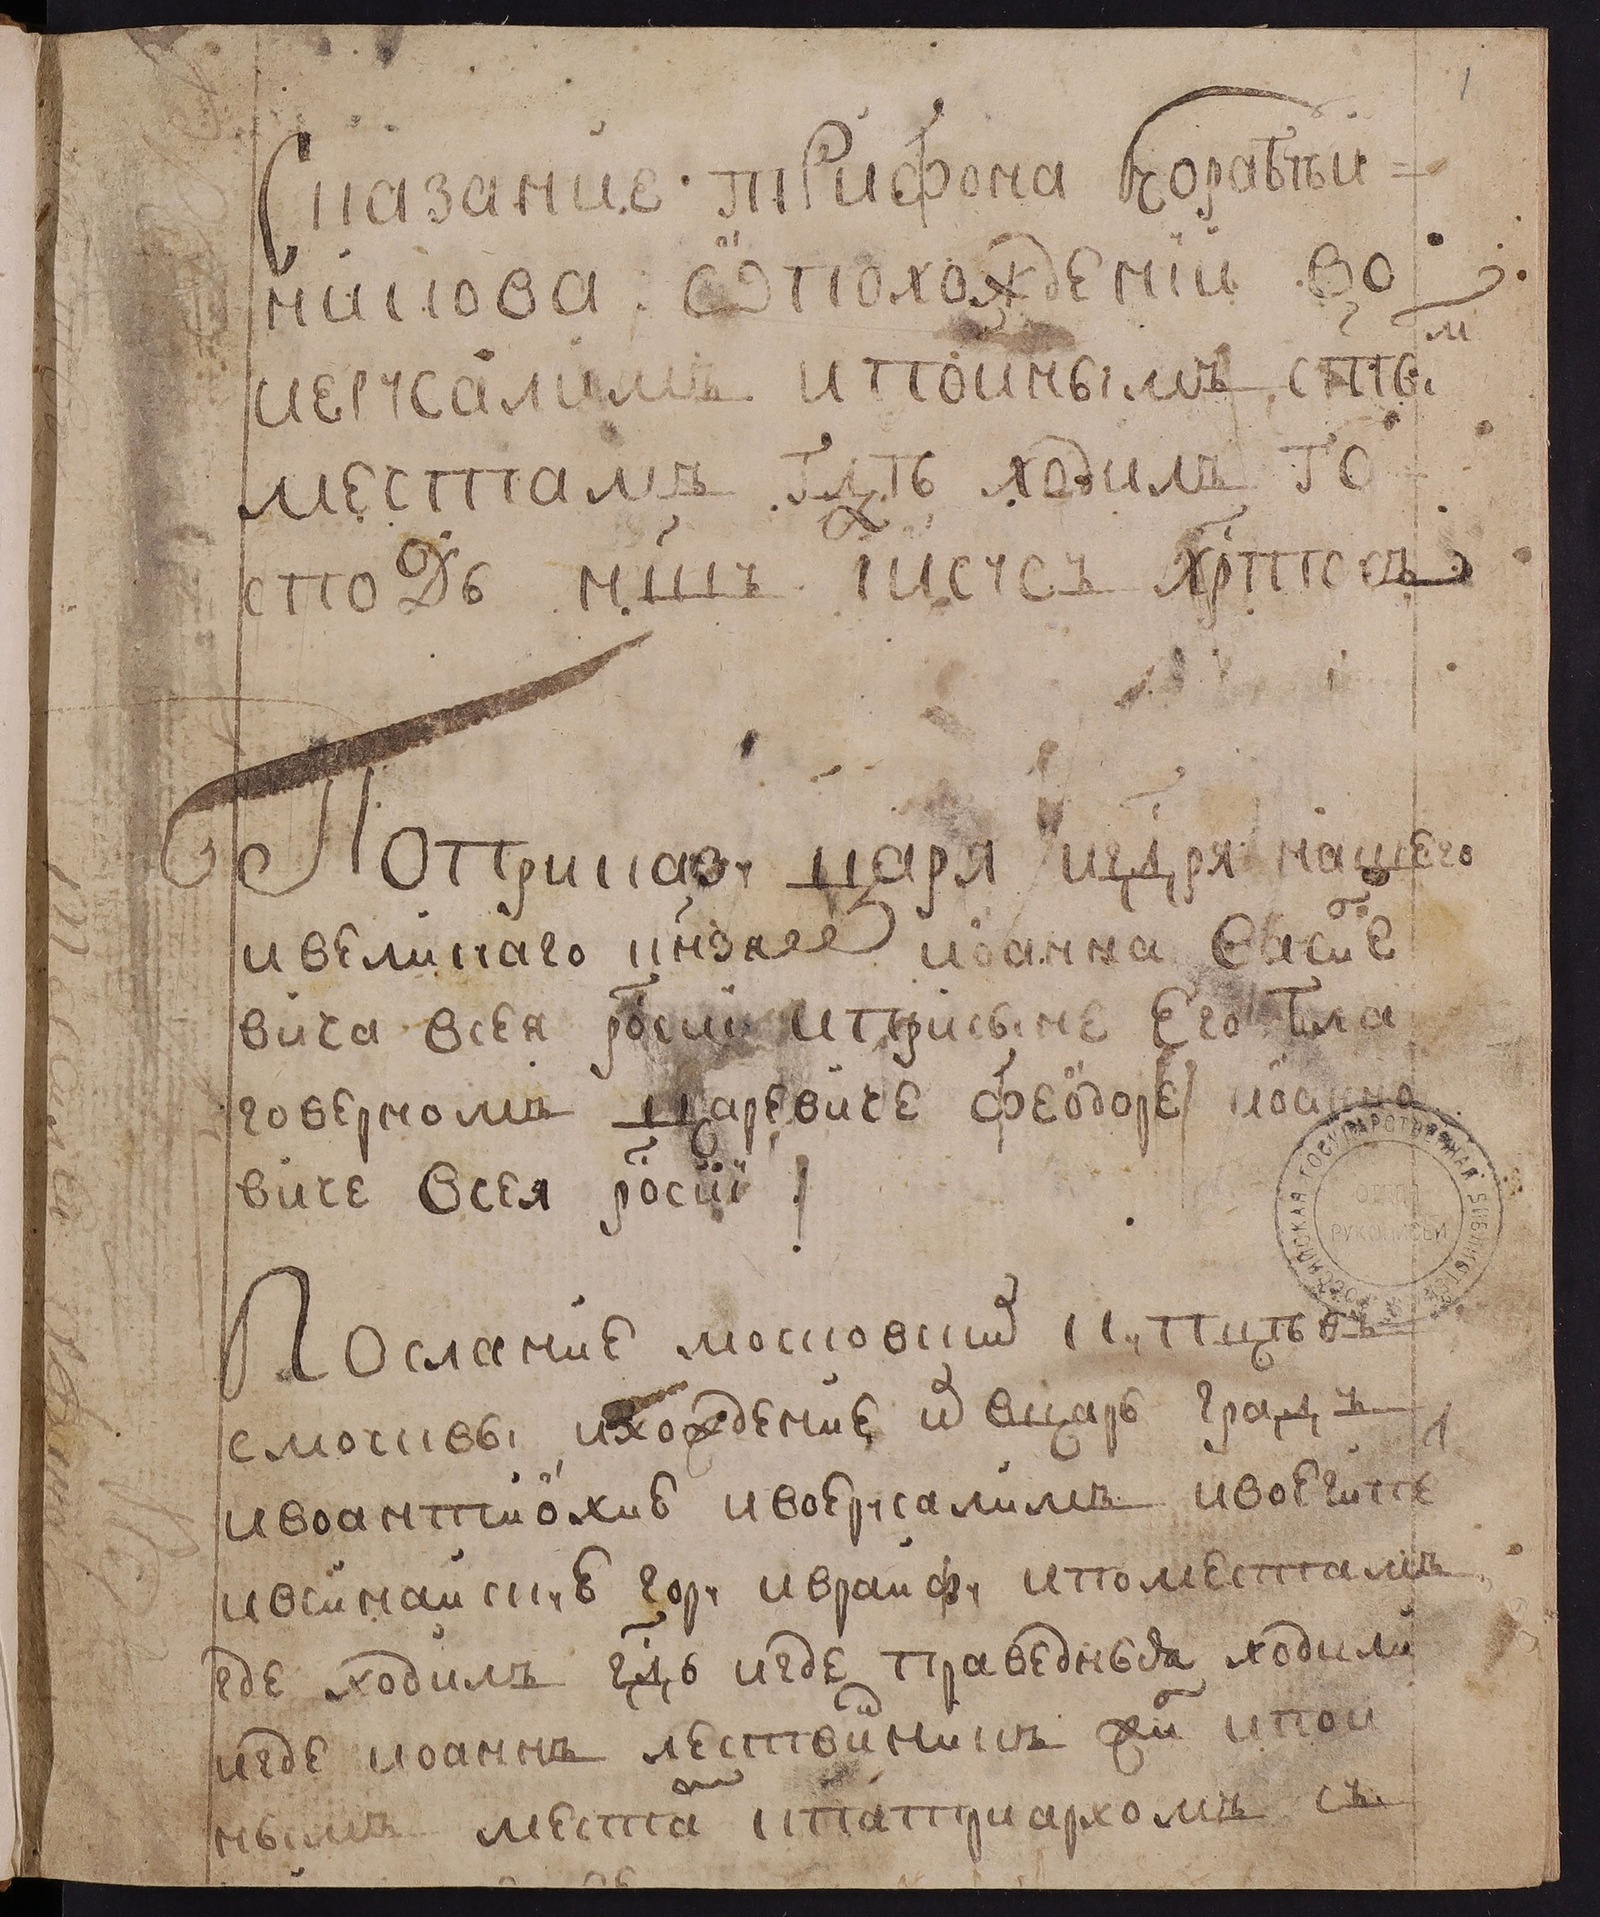 1
Сказание трифона корабеи=
никова. ѿ похождении во
иерусалимъ и поинымъ сты м
местамъ гдѣ ходилъ го
сподь ншъ иисусъ христосъ
По приказу царя и гдря нашего
и великаго кнзяя иоанна васие
вича всея росии и при сыне его бла
говерномъ царевиче феодоре иоанно
виче всея росии
Послание московских купцовъ
смосквы и хождение их вцарь градъ
и воантиохию и воерусалимъ и воегипте
и всинайскую гору и враифу и поместамъ
где ходилъ гдь и где праведныя ходили
и где иоаннъ лествиникъ и пои
нымъ места и патриархомъ съ
РОССИЙСКАЯ ГОСУДАРСТВЕННАЯ БИБЛИОТЕКА
ОТДЕЛ
РУКОПИСЕЙ